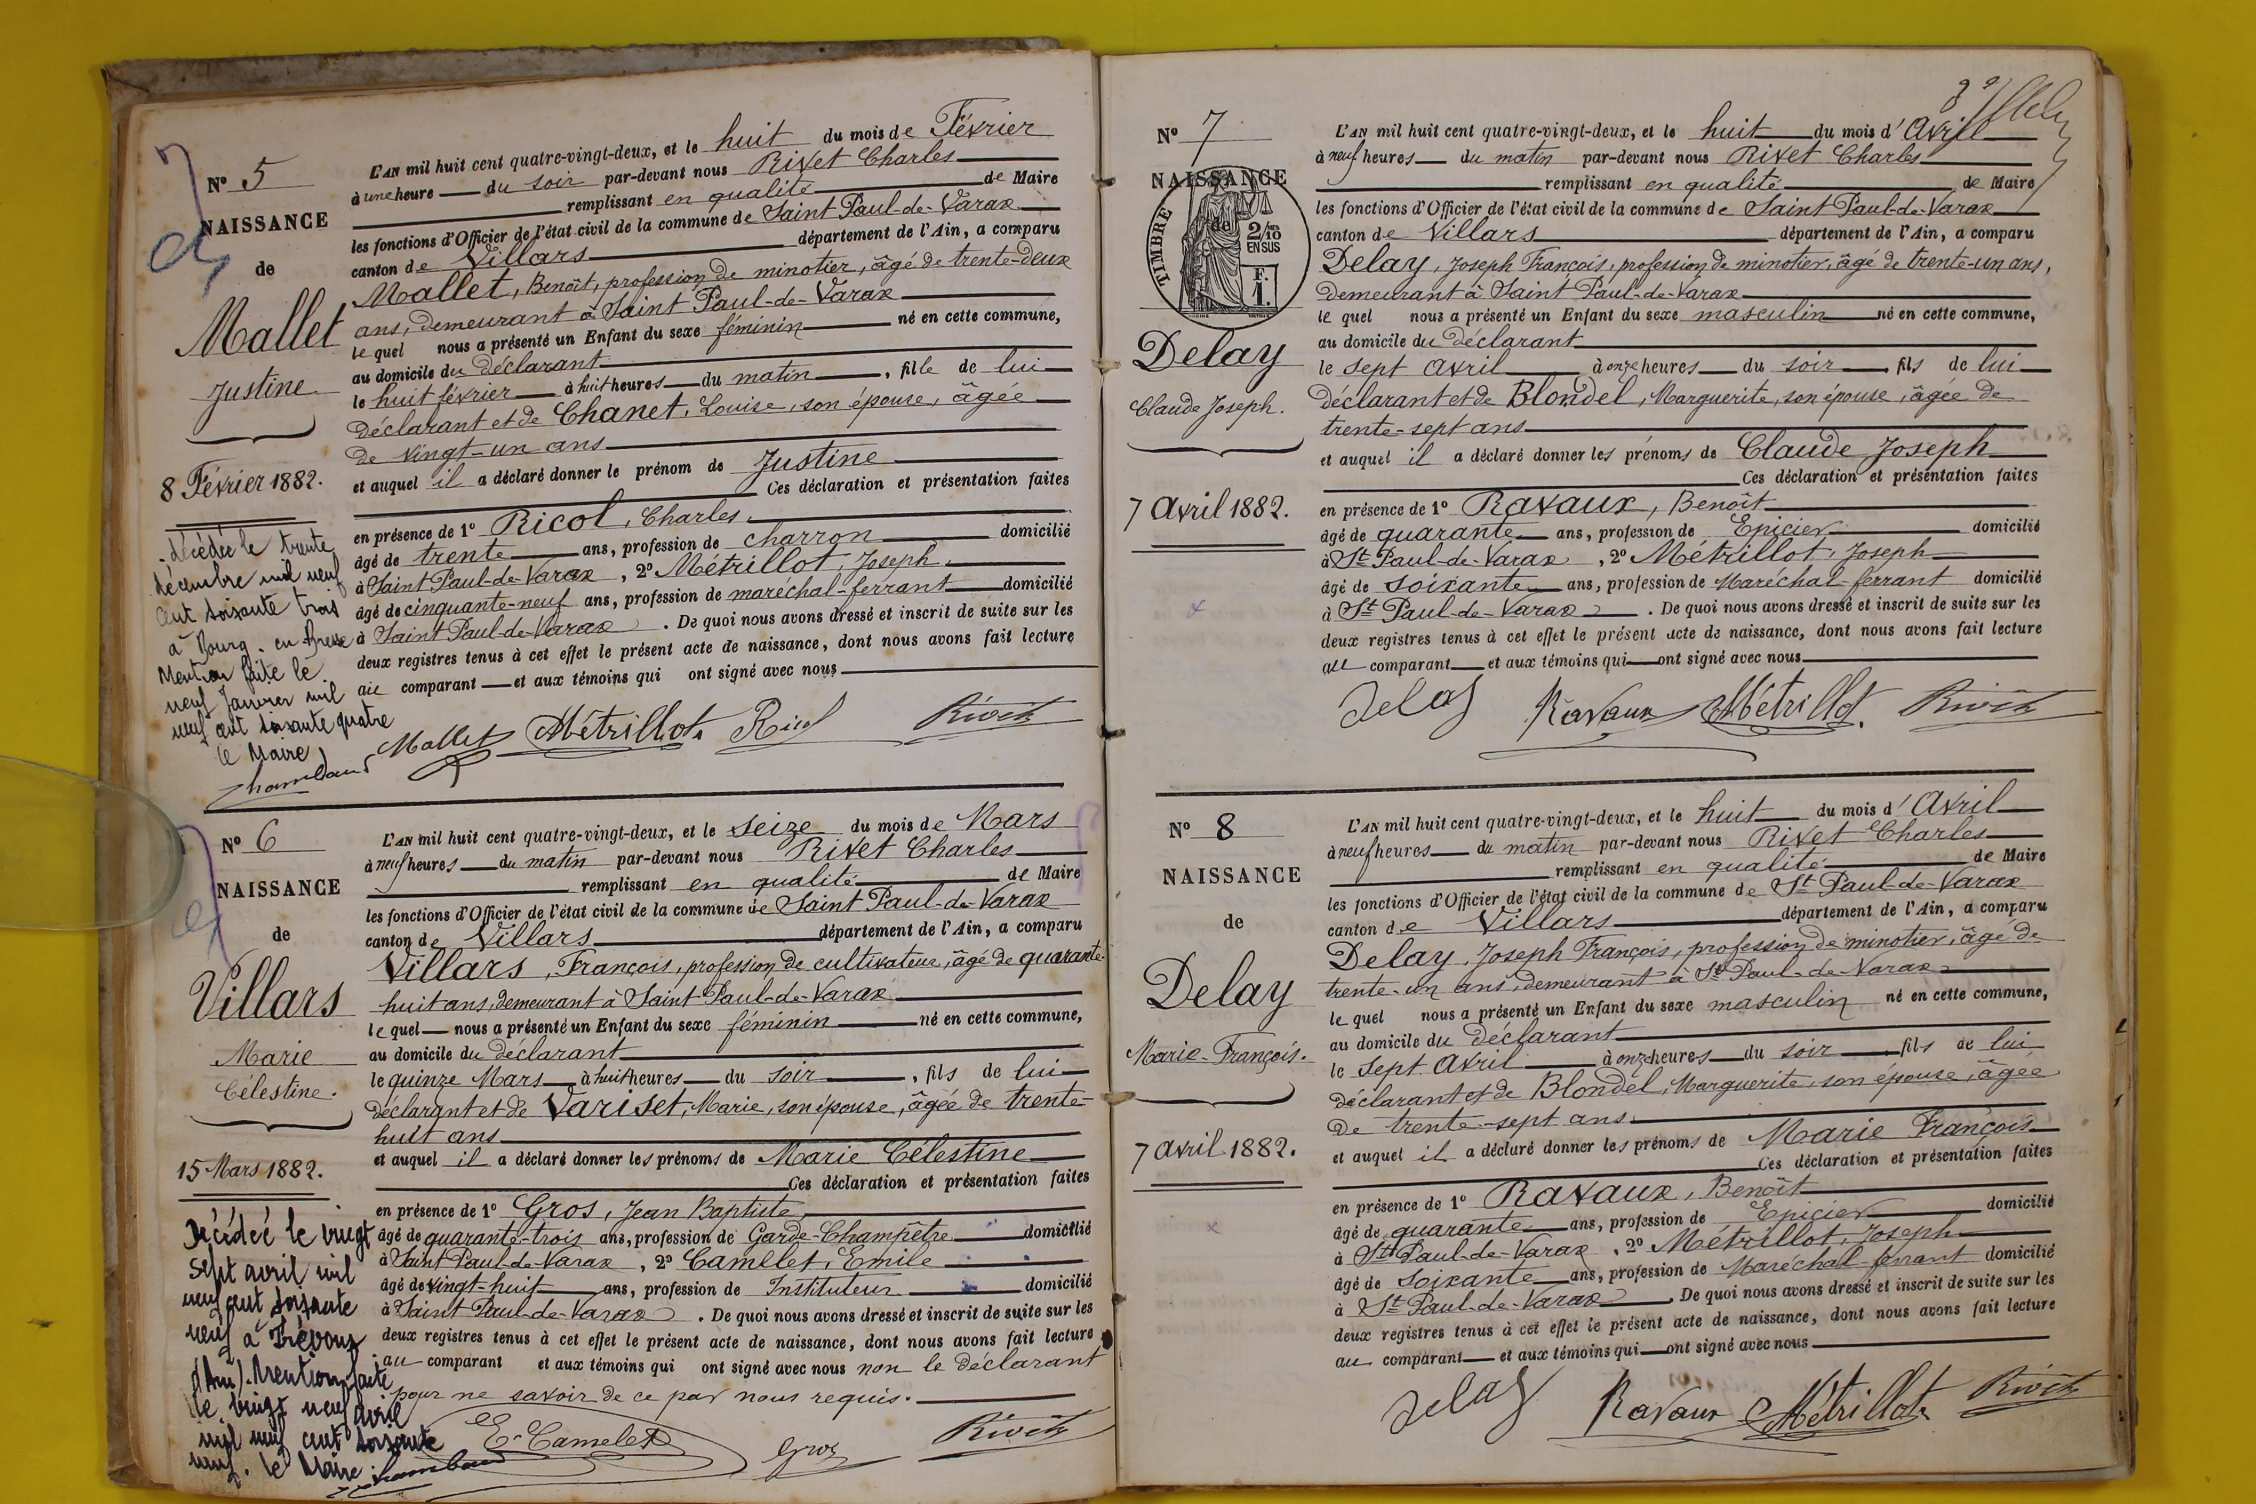 N° 5
NAISSANCE
de
Mallet
Justine
8 Février 1882.
décédée le trente
décembre mil neuf
cent soixante trois
à Bourg-en-Bresse
Mention faite le
neuf Janvier mil
neuf cent soixante quatre
le Maire
L'AN mil huit cent quatre-vingt-deux, et le huit du mois de Février
à une heure du soir par-devant nous Rivet Charles
remplissant en qualité de Maire
les fonctions d'Officier de l'état civil de la commune de Saint Paul-de-Varax
canton de Villars département de l'Ain, a comparu
Mallet, Benoît, profession de minotier, âgé de trente-deux
ans, demeurant à Saint Paul-de-Varax
le quel nous a présenté un Enfant du sexe féminin né en cette commune,
au domicile du déclarant
le huit février à huit heures du matin, fille de lui
déclarant et de Chanet, Louise, son épouse, âgée
de vingt-un ans
et auquel il a déclaré donner le prénom de Justine
Ces déclaration et présentation faites
en présence de 1° Ricol, Charles,
âgé de trente ans, profession de charron domicilié
à Saint Paul-de-Varax, 2° Métrillot, Joseph,
âgé de cinquante-neuf ans, profession de maréchal-ferrant domicilié
à Saint Paul-de-Varax. De quoi nous avons dressé et inscrit de suite sur les
deux registres tenus à cet effet le présent acte de naissance, dont nous avons fait lecture
au comparant et aux témoins qui ont signé avec nous
Mallet Métrillot. Ricol Rivet
N° 6
NAISSANCE
de
Villars
Marie
Célestine.
15 Mars 1882.
Décédée le vingt
sept avril mil
neuf cent soixante
neuf à Trévoux
(Ain). Mention faite
le vingt neuf avril
mil neuf cent soixante
neuf. le Maire
L'AN mil huit cent quatre-vingt-deux, et le seize du mois de Mars
à neuf heures du matin par-devant nous Rivet Charles
remplissant en qualité de Maire
les fonctions d'Officier de l'état civil de la commune de Saint Paul-de-Varax
canton de Villars département de l'Ain, a comparu
Villars, François, profession de cultivateur, âgé de quarante-
huit ans, demeurant à Saint Paul-de-Varax
le quel nous a présenté un Enfant du sexe féminin né en cette commune,
au domicile du déclarant
le quinze Mars à huit heures du soir, fils de lui
déclarant et de Variset, Marie, son épouse, âgée de trente-
huit ans
et auquel il a déclaré donner les prénoms de Marie Célestine
Ces déclaration et présentation faites
en présence de 1° Gros, Jean Baptiste,
âgé de quarante-trois ans, profession de Garde-Champêtre domicilié
à Saint Paul-de-Varax, 2° Camelet, Emile
âgé de vingt-huit ans, profession de Instituteur domicilié
à Saint Paul-de-Varax. De quoi nous avons dressé et inscrit de suite sur les
deux registres tenus à cet effet le présent acte de naissance, dont nous avons fait lecture
au comparant et aux témoins qui ont signé avec nous non le déclarant
pour ne savoir de ce par nous requis.
E. Camelet Gros Rivet
N° 7
NAISSANCE
de
TIMBRE
2/10
EN SUS
F.
1.
Delay
Claude Joseph.
7 Avril 1882.
L'AN mil huit cent quatre-vingt-deux, et le huit du mois d'Avril
à neuf heures du matin par-devant nous Rivet Charles
remplissant en qualité de Maire
les fonctions d'Officier de l'état civil de la commune de Saint Paul-de-Varax
canton de Villars département de l'Ain, a comparu
Delay, Joseph François, profession de minotier, âgé de trente-un ans,
demeurant à Saint Paul-de-Varax
le quel nous a présenté un Enfant du sexe masculin né en cette commune,
au domicile du déclarant
le sept Avril à onze heures du soir, fils de lui
déclarant et de Blondel, Marguerite, son épouse, âgée de
trente-sept ans
et auquel il a déclaré donner les prénoms de Claude Joseph
Ces déclaration et présentation faites
en présence de 1° Ravaux, Benoît
âgé de quarante ans, profession de Epicier domicilié
à St Paul-de-Varax, 2° Métrillot, Joseph
âgé de soixante ans, profession de Maréchal-ferrant domicilié
à St Paul-de-Varax. De quoi nous avons dressé et inscrit de suite sur les
deux registres tenus à cet effet le présent acte de naissance, dont nous avons fait lecture
au comparant et aux témoins qui ont signé avec nous
Delay Ravaux Métrillot. Rivet
N° 8
NAISSANCE
de
Delay
Marie-François.
7 Avril 1882.
L'AN mil huit cent quatre-vingt-deux, et le huit du mois d'Avril
à neuf heures du matin par-devant nous Rivet Charles
remplissant en qualité de Maire
les fonctions d'Officier de l'état civil de la commune de St Paul-de-Varax
canton de Villars département de l'Ain, a comparu
Delay, Joseph François, profession de minotier, âgé de
trente-un ans, demeurant à St Paul-de-Varax
le quel nous a présenté un Enfant du sexe masculin né en cette commune,
au domicile du déclarant
le sept Avril à onze heures du soir, fils de lui
déclarant et de Blondel, Marguerite, son épouse, âgée
de trente-sept ans
et auquel il a déclaré donner les prénoms de Marie François
Ces déclaration et présentation faites
en présence de 1° Ravaux, Benoît
âgé de quarante ans, profession de Epicier domicilié
à St Paul-de-Varax, 2° Métrillot, Joseph
âgé de soixante ans, profession de Maréchal-ferrant domicilié
à St Paul-de-Varax. De quoi nous avons dressé et inscrit de suite sur les
deux registres tenus à cet effet le présent acte de naissance, dont nous avons fait lecture
au comparant et aux témoins qui ont signé avec nous
Delay Ravaux Métrillot. Rivet